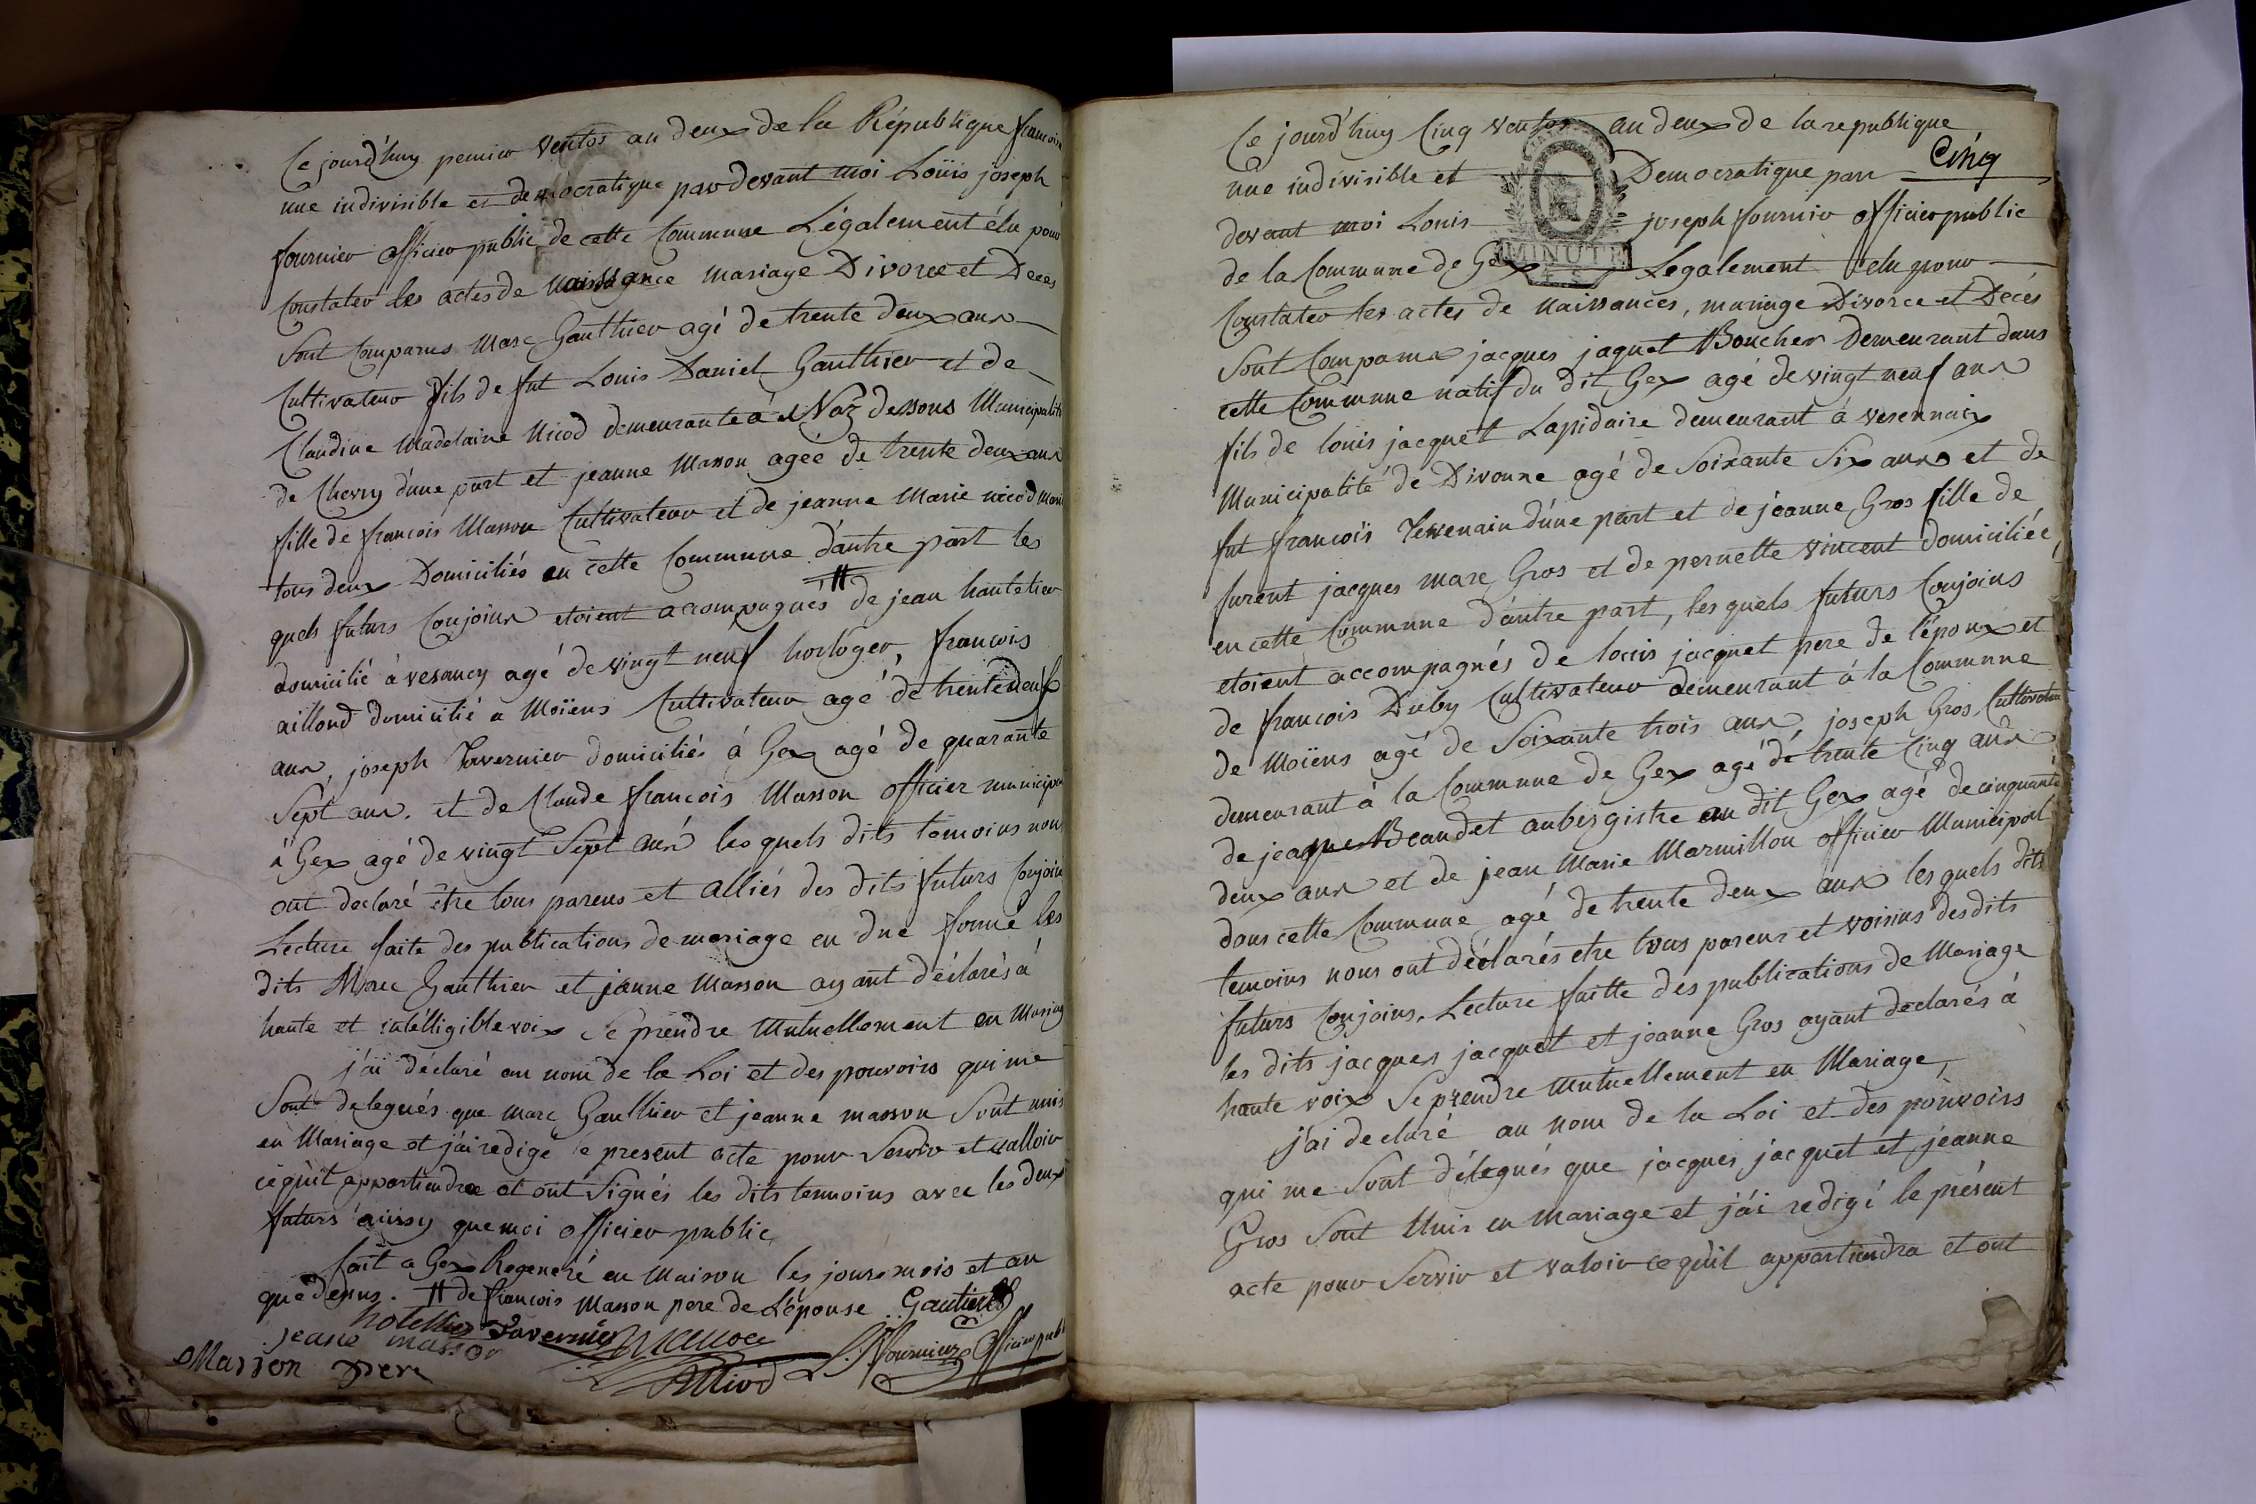 Ce jourd'huy pemier Ventos an deux de la République francoise
une indivisible et democratique pardevant moi Loüis joseph
fournier officier public de cette Commune Légalement élu pour
Constater les actes de Naissance mariage Divorce et Décès
Sont Comparus Marc Gauthier agé de trente deux ans
Cultivateur fils de fut Louis Daniel Gauthier et de
Claudine Madelaine Nicod demeurante à Naz dessous Municipalité
de Chevry d'une part et jeanne Masson ageé de trente deux ans
fille de francois Masson Cultivateur et de jeanne Marie nicod
tous deux Domiciliés en cette Commune d'autre part les
quels futurs Conjoins etoient accompagnés # de jean hautetier
domicilié à vesancy agé de vingt neuf horloger, francois
aillond domicilié a Moïens Cultivateur agé de trente neuf
ans, joseph Tavernier domiciliés à Gex agé de quarante
Sept ans. et de Claude francois Masson officier municipal
à Gex agé de vingt Sept ans les quels dits temoins nous
ont declaré être tous parens et alliés des dits futurs Conjoins
Lecture faite des publications de mariage en due forme les
dits Marc Gauthier et jeanne Masson ayant déclarés à
haute et intélligible voix Se prendre Mutuellement en Mariage
j'ai déclaré au nom de la Loi et des pouvoirs qui me
Sont delegués que Marc Gauthier et jeanne masson Sont unis
en Mariage et j'ai redigé le present acte pour Servir et valloir
ce qu'il appartiendra et ont Signés les dits temoins avec les deux
futurs aussy que moi officier public
fait a Gex Regeneré en Maison les jours mois et an
que dessus. # de francois Masson pere de L'épouse Gautier
hotellier Tavernier
jeane masson L. J. fournier Officier publ
Masson pere
Ce jourd'huy Cinq ventos an deux de la republique
Cinq
une indivisible et Democratique par
devant moi Louis joseph fournier officier public
MINUTE
de la Commune de Gex Legalement elu pour
Constater les actes de naissances, mariage Divorce et Décès
Sont Comparus jacques jaquet Boucher Demeurant dans
cette Commune natif du dit Gex agé de vingt neuf ans
fils de louis jacquet Lapidaire demeurant à vesennaix
Municipalité de Divonne agé de Soixante Six ans et de
fut francois d'une part et de jeanne Gros fille de
furent jacques marc Gros et de pernette vincent domiciliée
en cette Commune d'autre part, les quels futurs Conjoins
etoient accompagnés de louis jacquet pere de l'époux et
de francois Duby Cultivateur demeurant à la Commune
de Moïens agé de Soixante trois ans joseph Gros Cultivateur
demeurant à la Commune de Gex agé de trente Cinq ans
de jeaques Beaudet aubergistre au dit Gex agé de cinquante
deux ans et de jean Marie Marmillon officier Municipal
dans cette Commune agé de trente deux ans les quels dits
temoins nous ont déclarés etre tous parens et voisins des dits
futurs Conjoins, Lecture faitte des publications de Mariage
les dits jacques jacquet et jeanne Gros ayant declarés à
haute voix Se prendre Mutuellement en Mariage,
j'ai declaré au nom de la Loi et des pouvoirs
qui me Sont délegués que jacques jacquet et jeanne
Gros Sont Unis en Mariage et j'ai redigé le présent
acte pour Servir et valoir ce qu'il appartiendra et ont